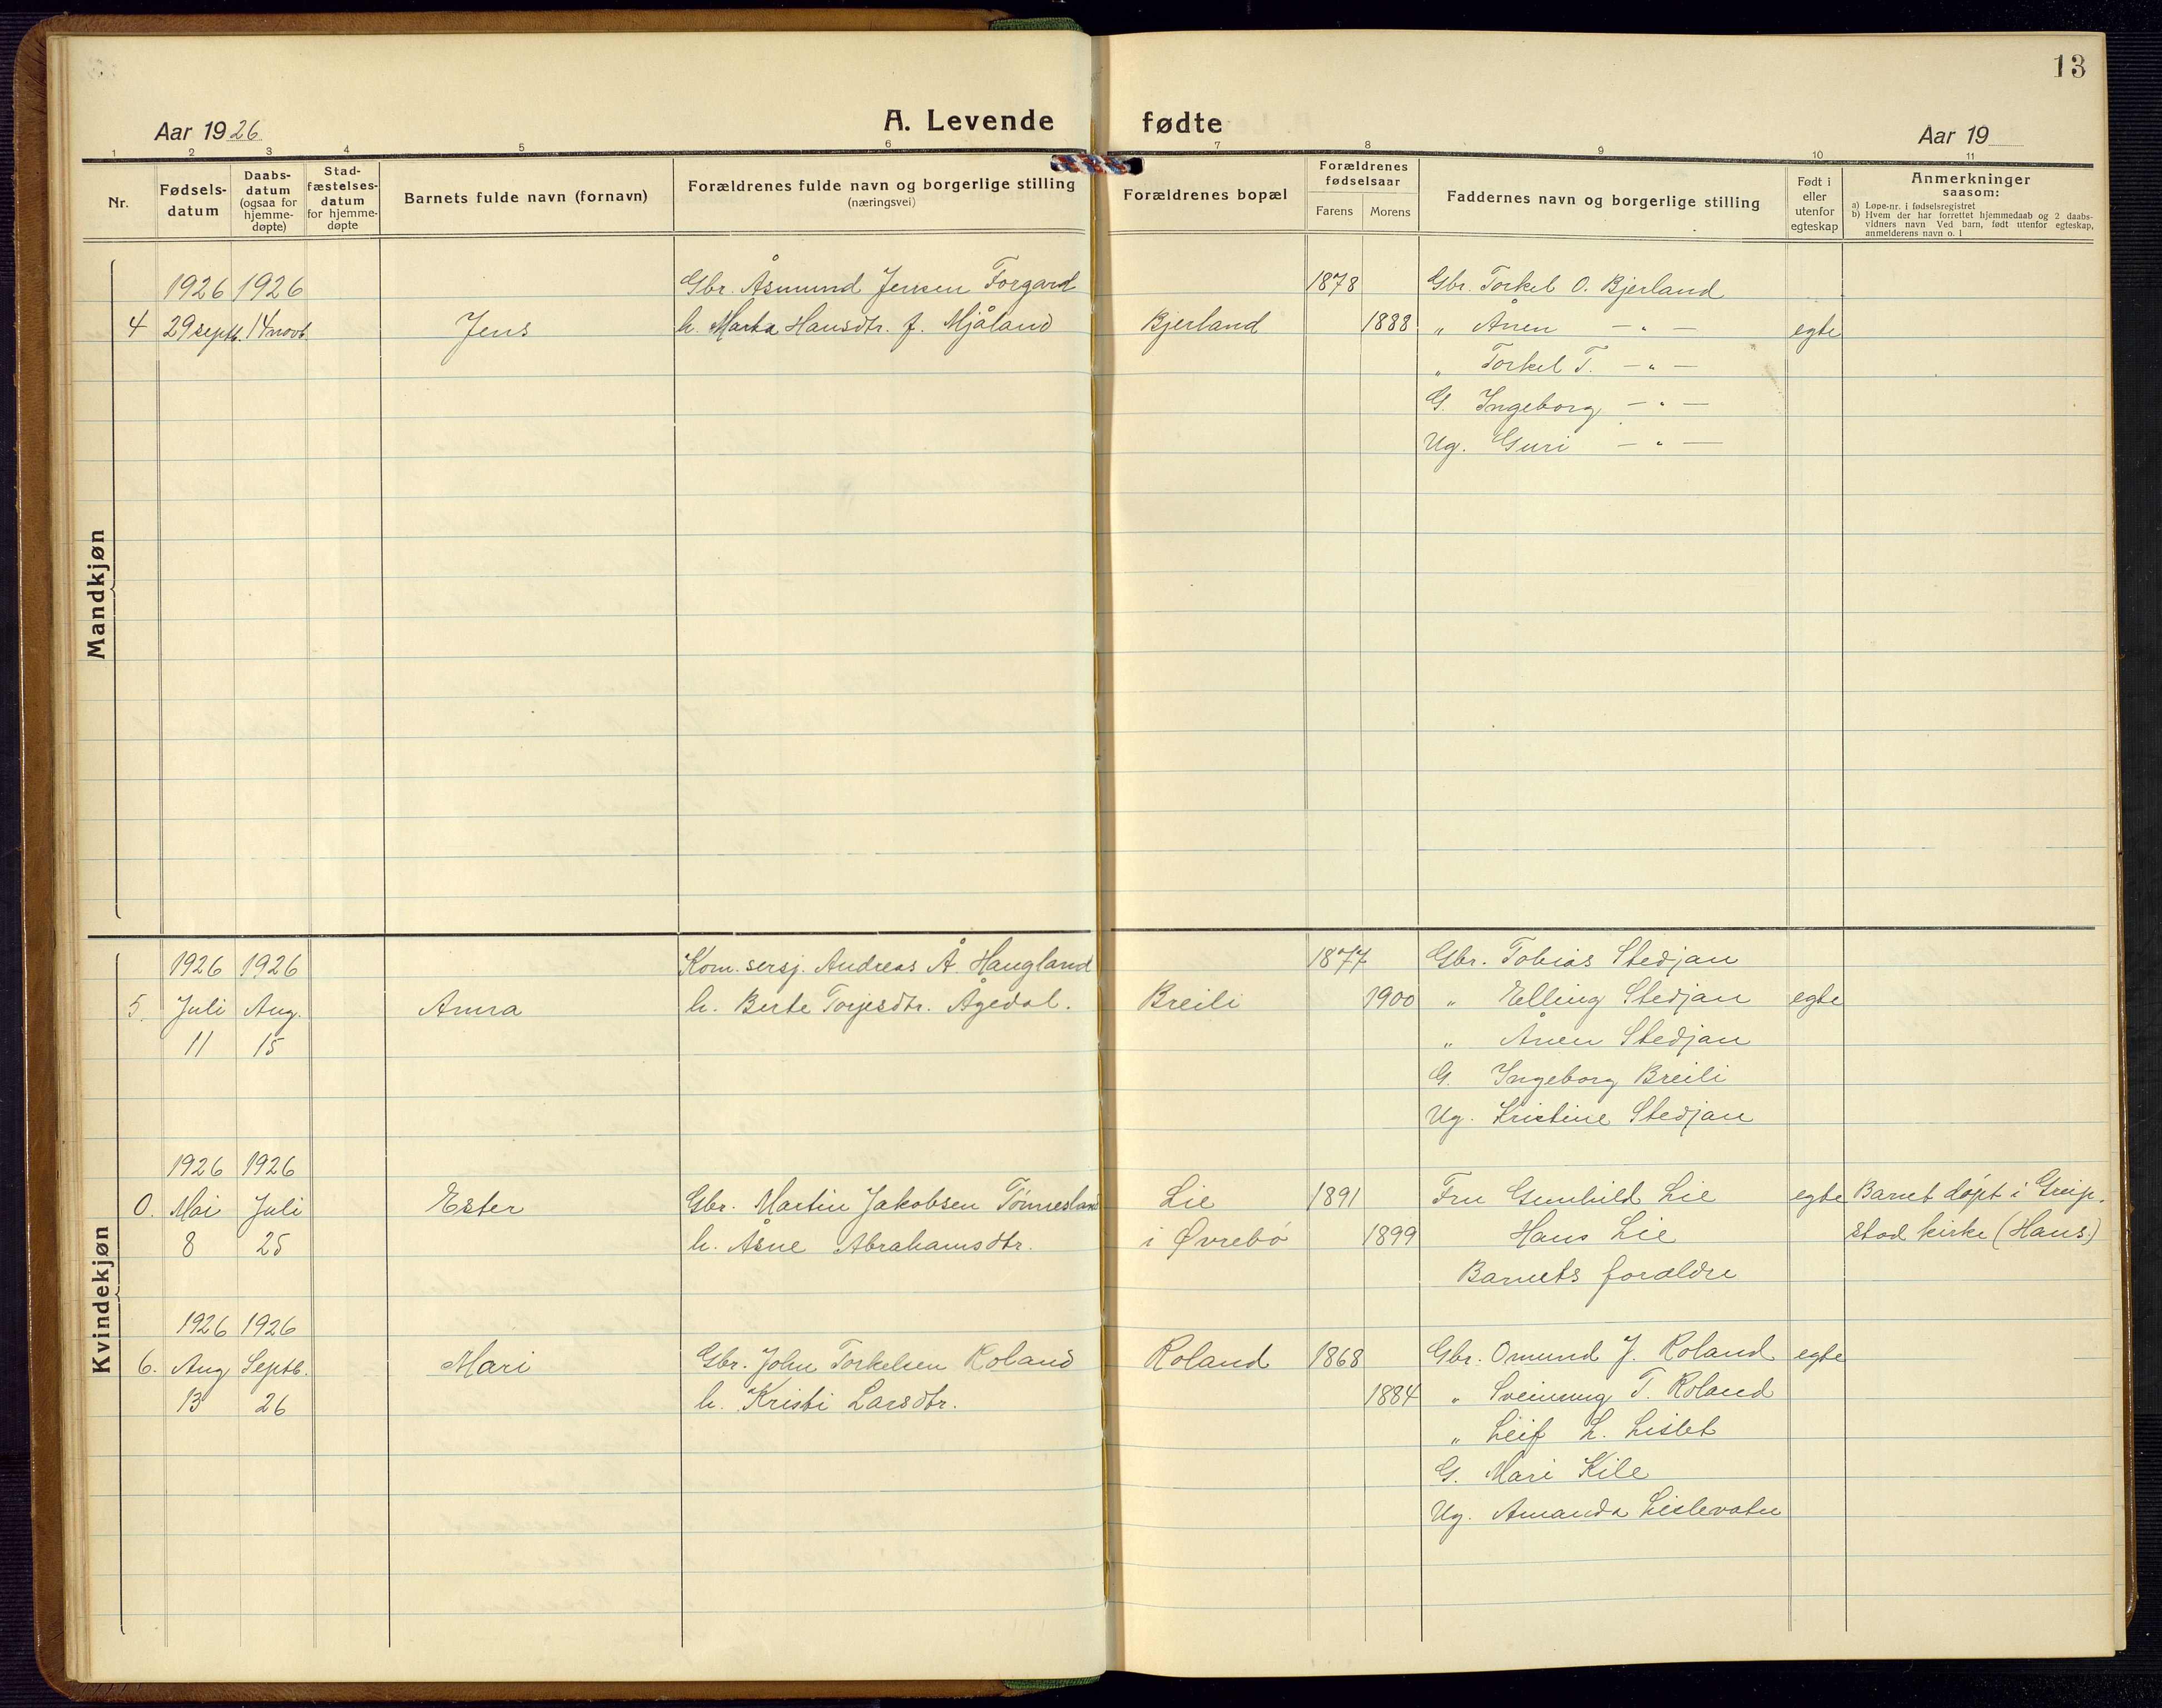 13
Aar 1926
A. Levende fødte
Aar 19
1 2 3 4 5 6 7 8 9 10 11
Nr.
Fødsels-
datum
Daabs-
datum
(ogsaa for
hjemme-
døpte)
Stad-
fæstelses-
datum
for hjemme-
døpte
Barnets fulde navn (fornavn)
Forældrenes fulde navn og borgerlige stilling
(næringsvei)
Forældrenes bopæl
Forældrenes
fødselsaar
Farens Morens
Faddernes navn og borgerlige stilling
Født i
eller
utenfor
egteskap
Anmerkninger
saasom:
a) Løpe-nr. i fødselsregistret
b) Hvem der har forrettet hjemmedaab og 2 daabs-
vidners navn Ved barn, født utenfor egteskap,
anmelderens navn o. l
Mandkjøn
1926 1926 Gbr. Åsmund Jensen Forgard 1878 Gbr. Torkel O. Bjerland
4 29 septb. 14 novb. Jens h. Marta Hansdtr. f. Mjåland Bjerland 1888 " Ånen — " — egte
" Torkel T. — " —
G. Ingeborg — " —
Ug. Guri — " —
Kvindekjøn
1926 1926 Kom. sersj. Andreas Å. Haugland 1877 Gbr. Tobias Stedjan
5. Juli Aug. Anna h. Berte Torjesdtr. Ågedal. Breili 1900 " Elling Stedjan egte
11 15 " Ånen Stedjan
G. Ingeborg Breili
Ug. Kristine Stedjan
1926 1926
0. Mai Juli Ester Gbr. Martin Jakobsen Tönnesland Lie 1891 Fru Gunhild Lie egte Barnet döpt i Greip-
8 25 h. Åsne Abrahamsdtr. i Øvrebö 1899 Hans Lie stad kirke (Hans.)
Barnets foraldre
1926 1926
6. Aug Septb. Mari Gbr. John Torkelsen Roland Roland 1868 Gbr. Omund J. Roland egte
13 26 h. Kristi Larsdtr. 1884 " Sveinung T. Roland
" Leif L. Lislet
G. Mari Kile
Ug. Amanda Lislevatn